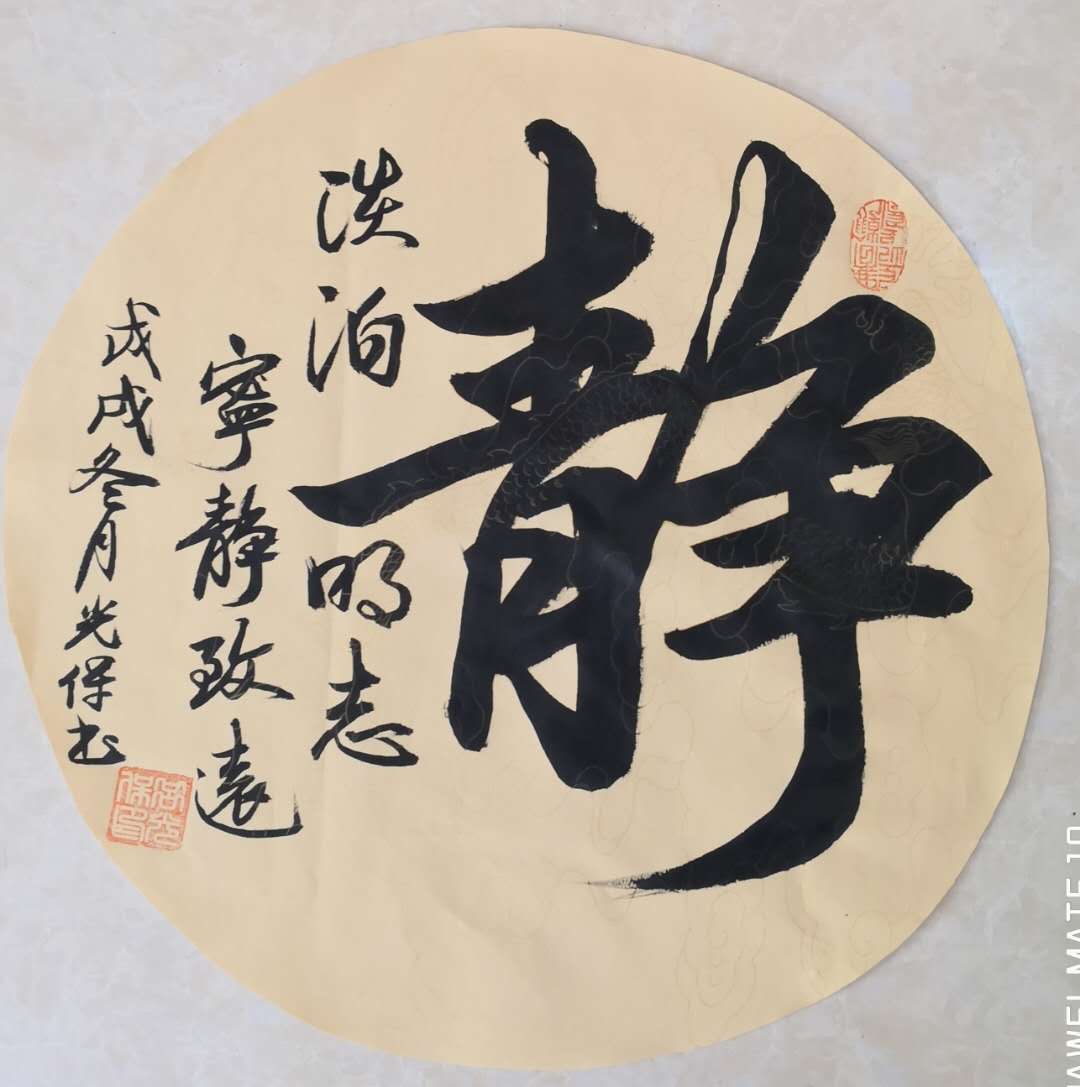 靜
淡泊明志
寧靜致遠
戊戌冬月光保书
AWEI MATE 10